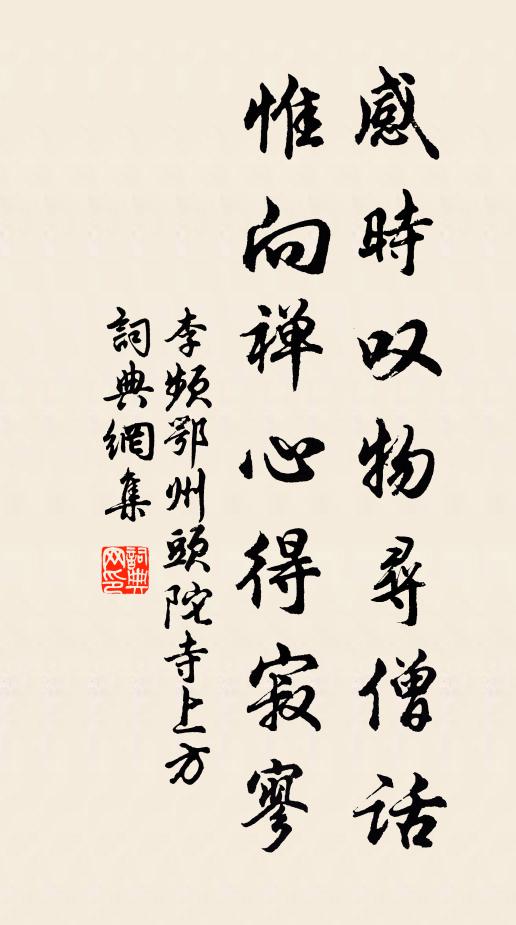 感時叹物尋僧話
惟向禅心得寂寥
李频鄂州頭陀寺上方
詞典網集
詞典网印